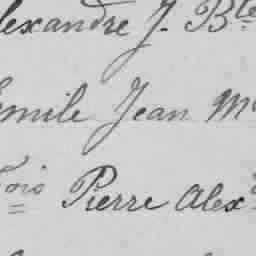 lexandre J. Bte
Emile Jean M
çois Pierre Alex